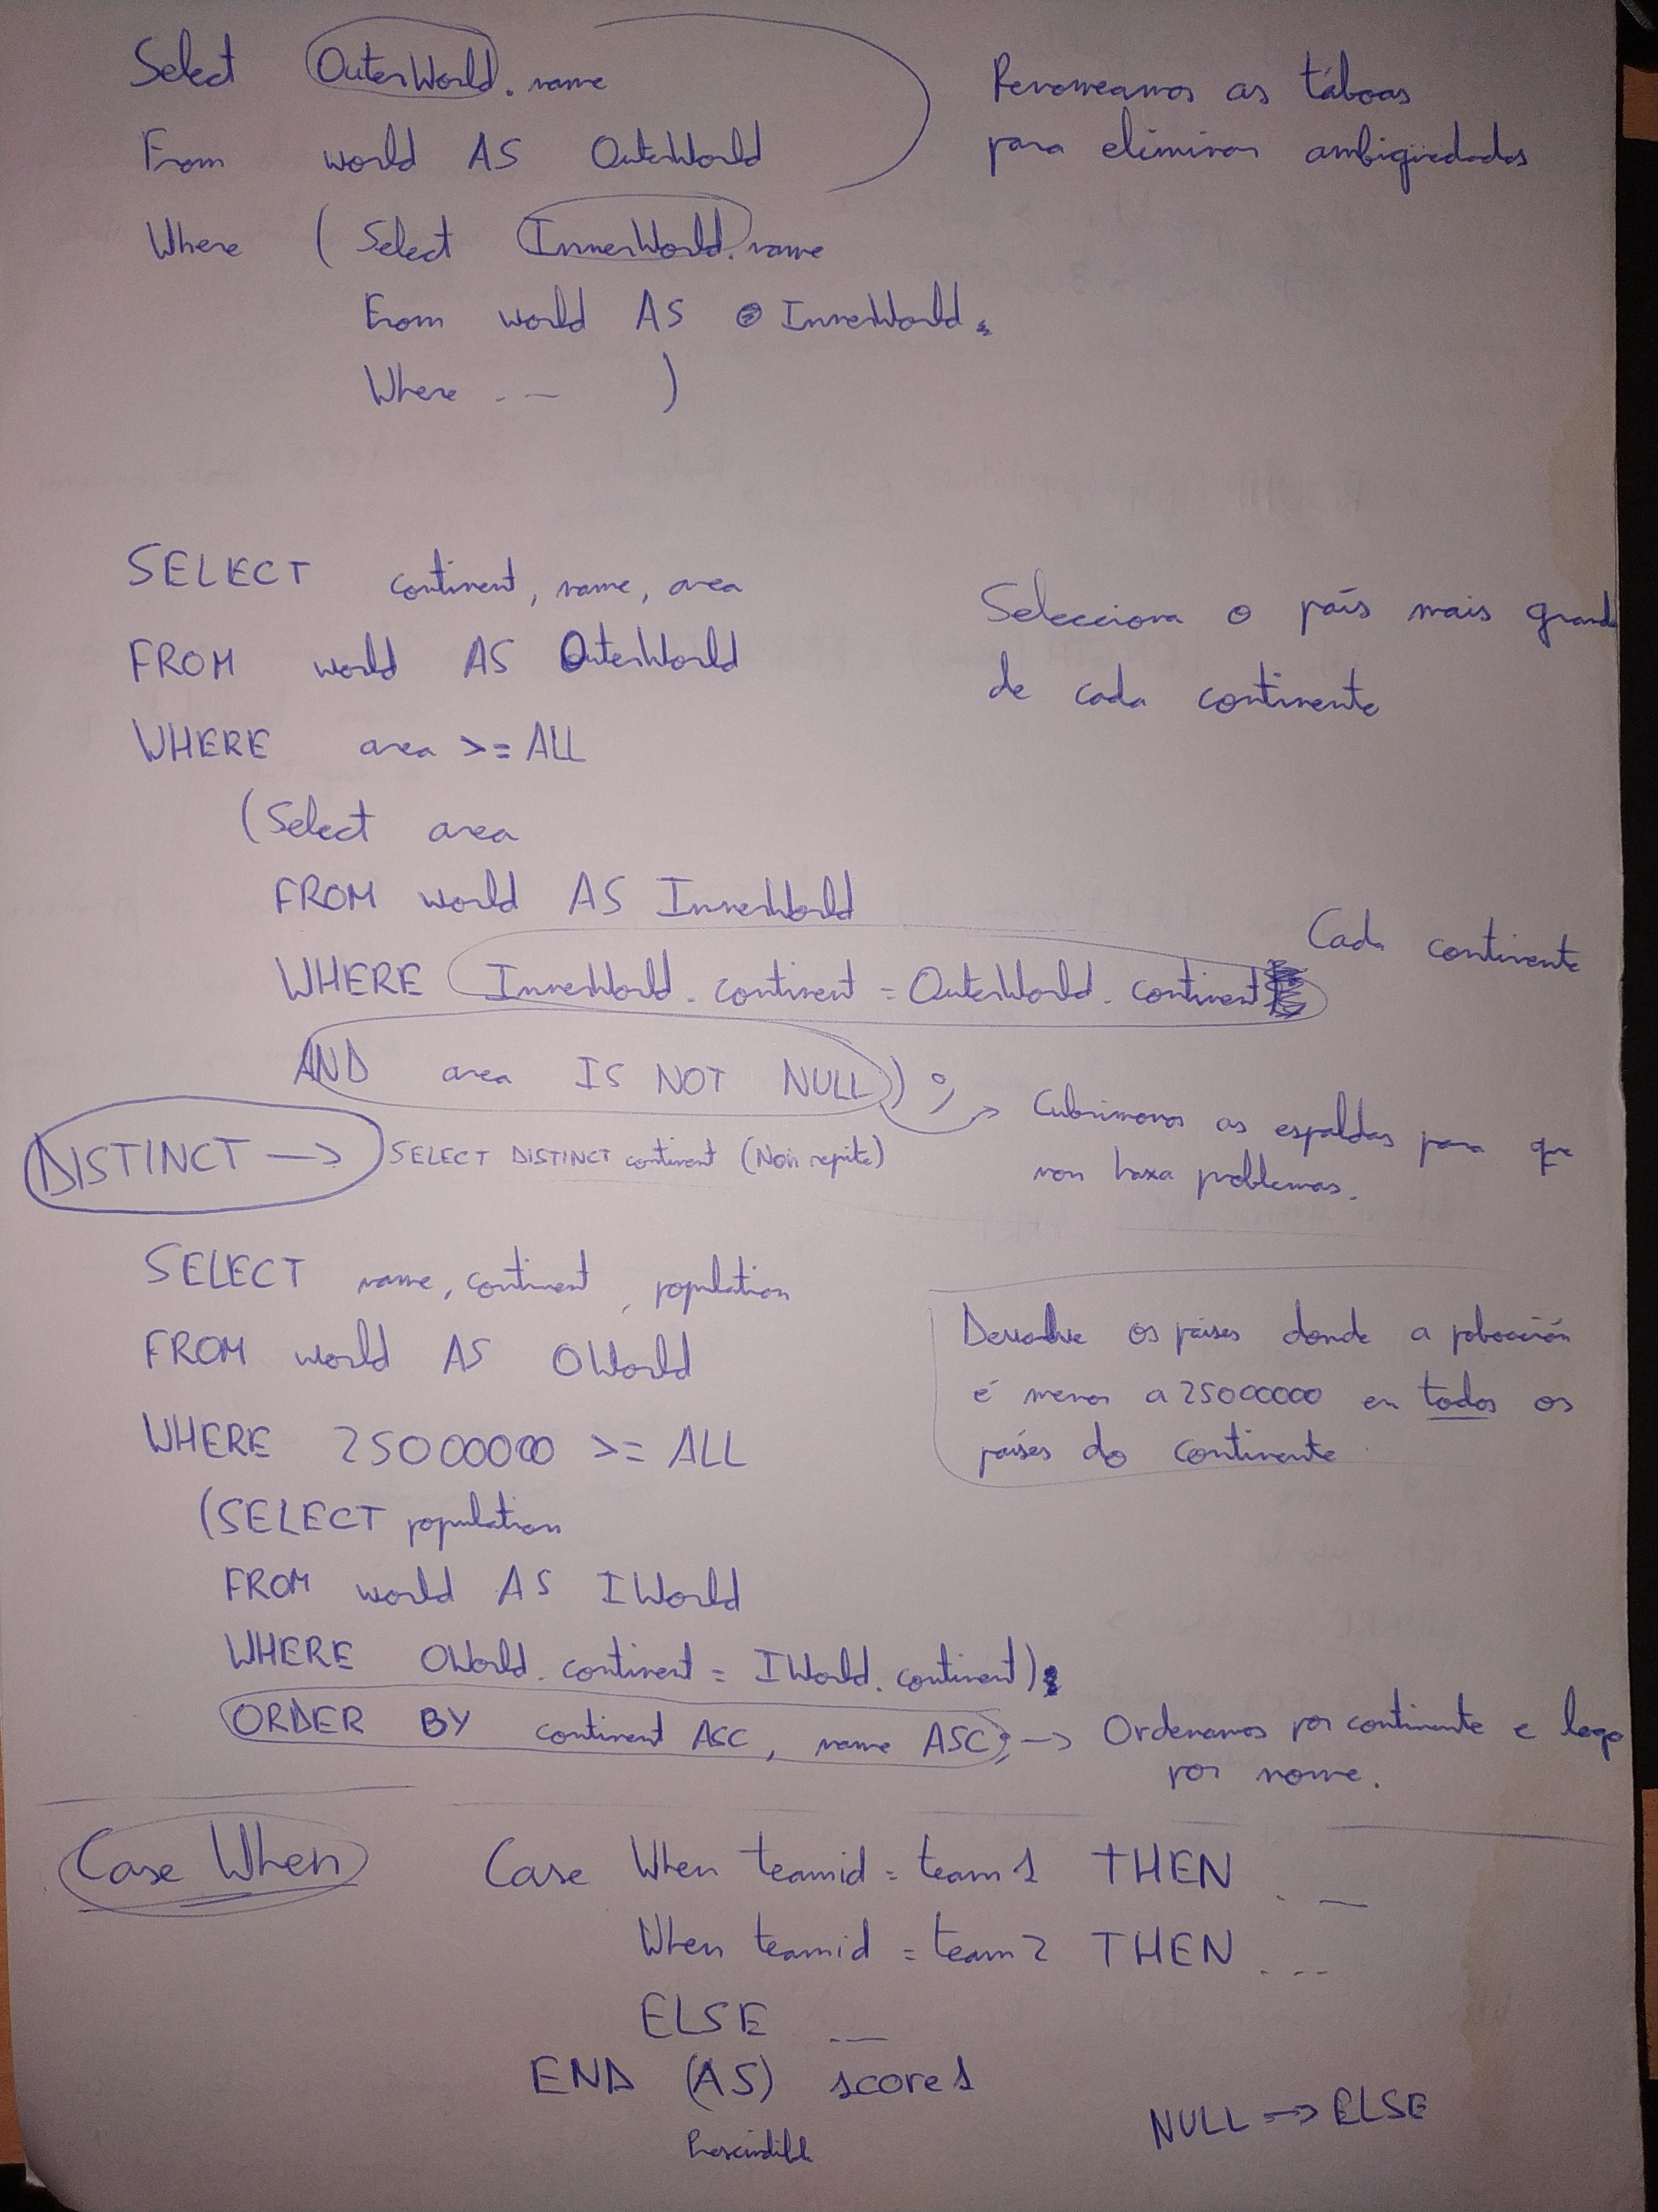 Select OuterWorld.name
From world AS OuterWorld
Renomeamos as táboas
para eliminar ambigüedades
Where ( Select InnerWorld.name
From world AS InnerWorld
Where ... )
SELECT continent, name, area
FROM world AS OuterWorld
WHERE area >= ALL
(Select area
FROM world AS InnerWorld
WHERE InnerWorld.continent = OuterWorld.continent
AND area IS NOT NULL);
Selecciona o país mais grande
de cada continente
Cada continente
Cubrimonos as espaldas para que
non haxa problemas.
DISTINCT → SELECT DISTINCT continent (Non repite)
SELECT name, continent, population
FROM world AS OWorld
WHERE 25000000 >= ALL
(SELECT population
FROM world AS IWorld
WHERE OWorld.continent = IWorld.continent)
ORDER BY continent ASC, name ASC; → Ordenamos por continente e logo
por nome.
Devolve os países donde a poboación
é menor a 25000000 en todos os
países do continente
Case When
Case When teamid = team1 THEN ...
When teamid = team2 THEN ...
ELSE ...
END (AS) score1
Prescindible
NULL → ELSE